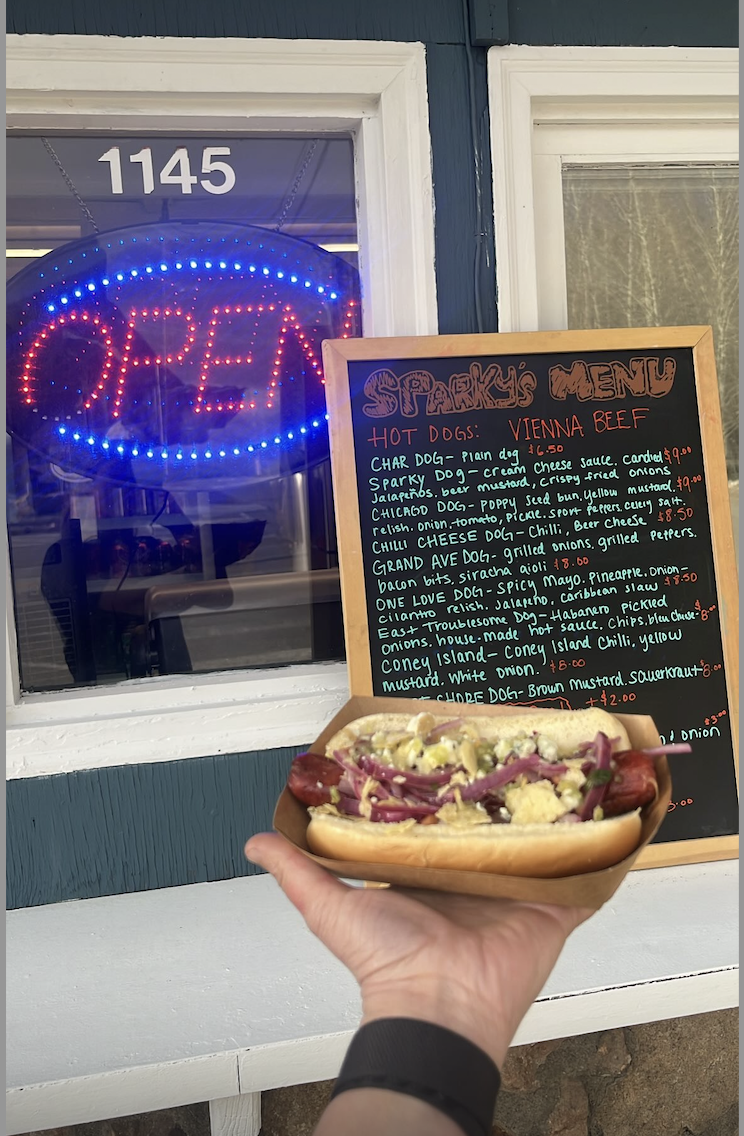 1145
OPEN
SPARKY'S MENU
HOT DOGS: VIENNA BEEF
CHAR DOG- Plain dog $6.50
Sparky Dog - cream cheese sauce, candied $9.00
Jalapeños, beer mustard, crispy fried onions
CHICAGO DOG- POPPY Seed bun, yellow mustard, $9.00
relish, onion, tomato, pickle, sport peppers, celery salt.
CHILLI CHEESE DOG- Chilli, Beer Cheese $8.50
GRAND AVE DOG- grilled onions, grilled peppers,
bacon bits, siracha aioli $8.00
ONE LOVE DOG- Spicy Mayo, Pineapple, Onion-
cilantro relish, Jalapeño, caribbean slaw $8.50
East Troublesome Dog- Habanero Pickled
Onions, house-made hot sauce, Chips, bleu cheese- $8.00
Coney Island- Coney Island Chilli, yellow
mustard, white onion. $8.00
SHORE DOG- Brown Mustard, Sauerkraut $8.00
+$2.00
$3.00
onion
3.00